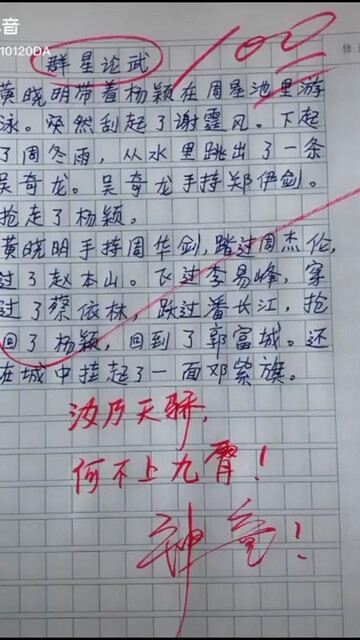 音
10120DA
100
群星论武
黄晓明带着杨颖在周星池里游
泳。突然刮起了谢霆风。下起
了周冬雨，从水里跳出了一条
吴奇龙。吴奇龙手持郑伊剑。
抢走了杨颖。
黄晓明手持周华剑，踏过周杰伦，
过了赵本山。飞过李易峰，穿
过了蔡依林，跃过潘长江，抢
回了杨颖，回到了郭富城。还
在城中挂起了一面邓紫旗。
汝乃天骄，
何不上九霄！
神童！